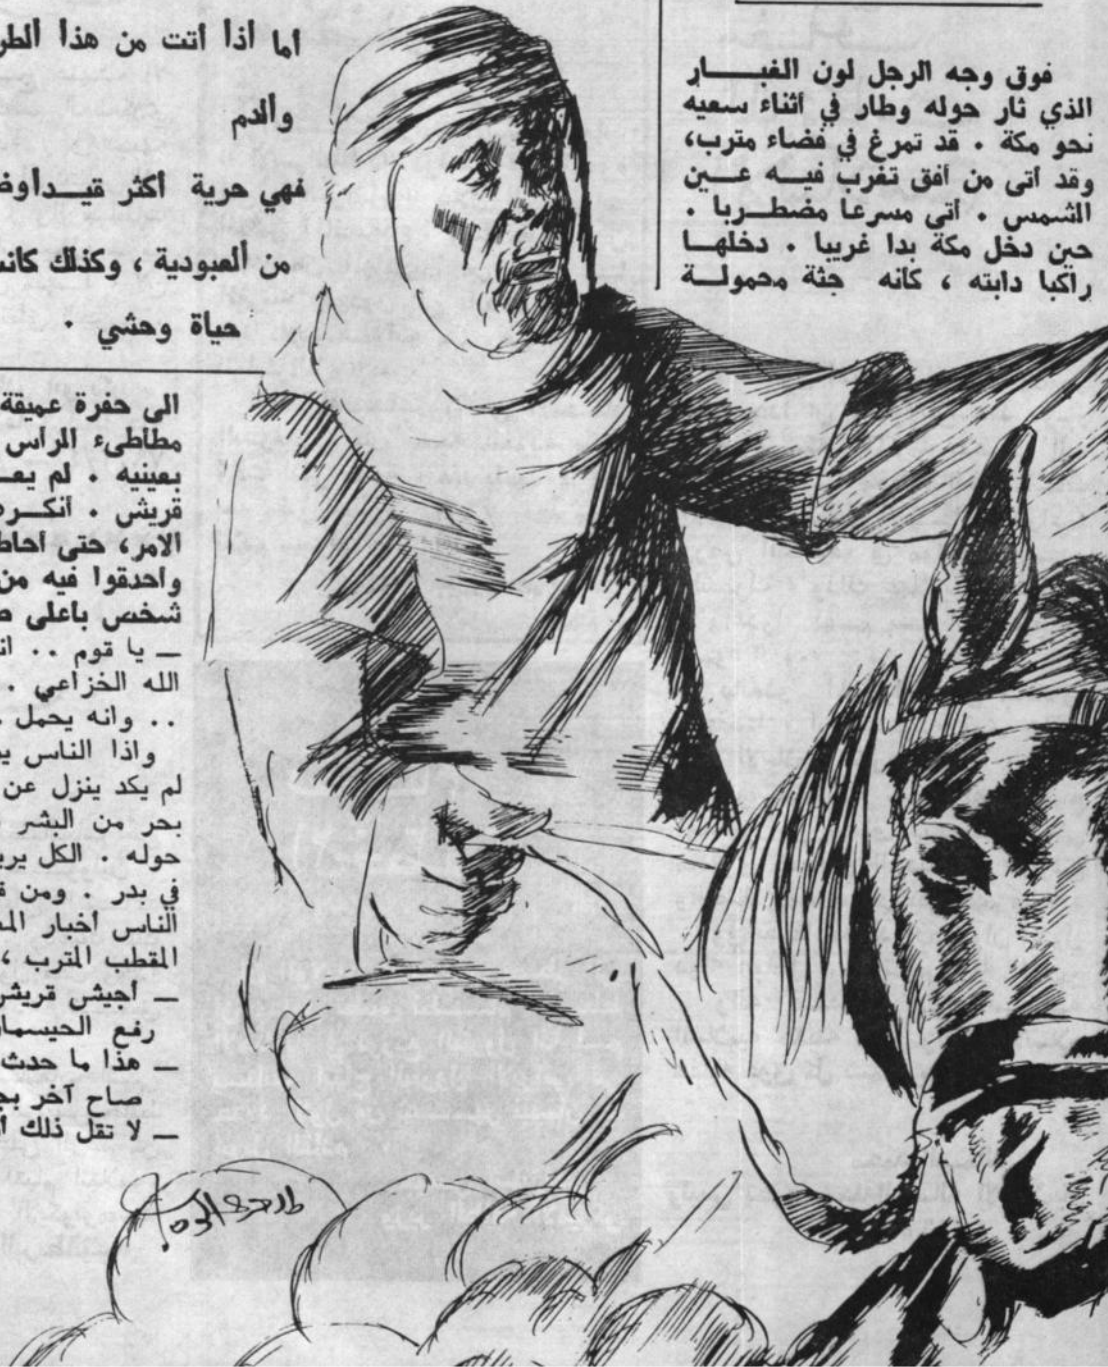 فوق وجه الرجل لون الغبـــــار
الذي ثار حوله وطار في أثناء سعيه
نحو مكة . قد تمرغ في فضاء مترب،
وقد أتى من أفق تغرب فيـــه عـــين
الشمس . أتى مسرعا مضطـــربا .
حين دخل مكة بدا غريبا . دخلهـــا
راكبا دابته ، كانه جثة محمولـــة
أما أذا أتت من هذا الطر
والدم
فهي حرية أكثر قيـــدا وض
من ألعبودية ، وكذلك كانت
حياة وحشي .
الى حفرة عميقة
مطاطىء الراس
بعينيه . لم يعـــ
قريش . أنكـــر
الامر، حتى أحاط
واحدقوا فيه من
شخص باعلى ص
ــ يا قوم .. ان
الله الخزاعي .
.. وانه يحمل .
واذا الناس ي
لم يكد ينزل عن
بحر من البشر
حوله . الكل ير
في بدر . ومن ق
الناس أخبار الم
المقطب المترب ،
ــ أجيش قريش
رفع الحيسمان
ــ هذا ما حدث
صاح آخر بج
ــ لا تقل ذلك أ